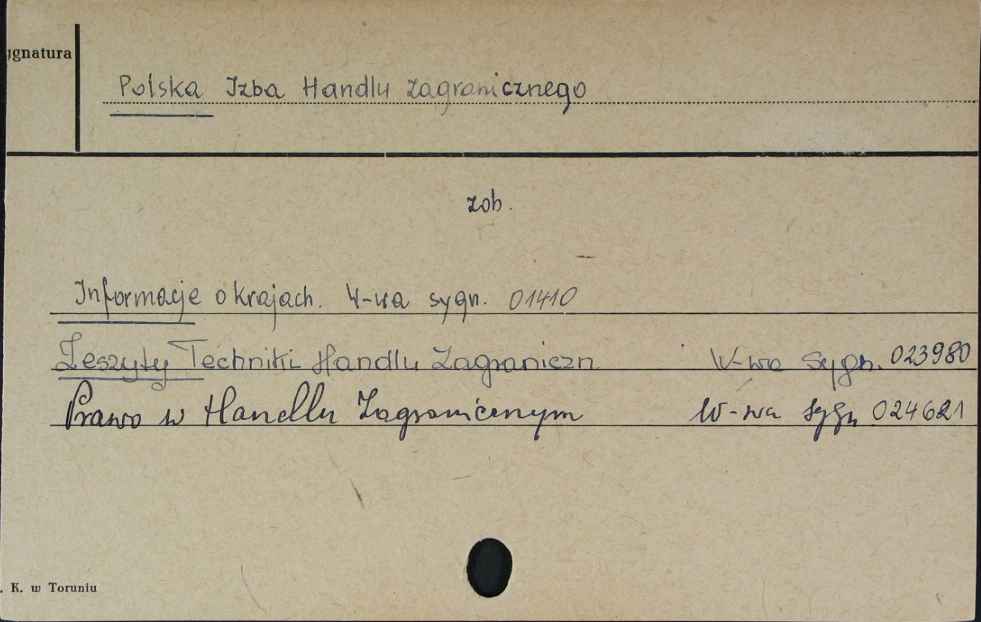 ygnatura
Polska Izba Handlu Zagranicznego
zob.
Informacje o krajach. W-wa sygn. 01410
Zeszyty Techniki Handlu Zagraniczn W-wa Sygn. 023980
Prawo w Handlu Zagranicznym W-wa Sygn 024621
. K. w Toruniu